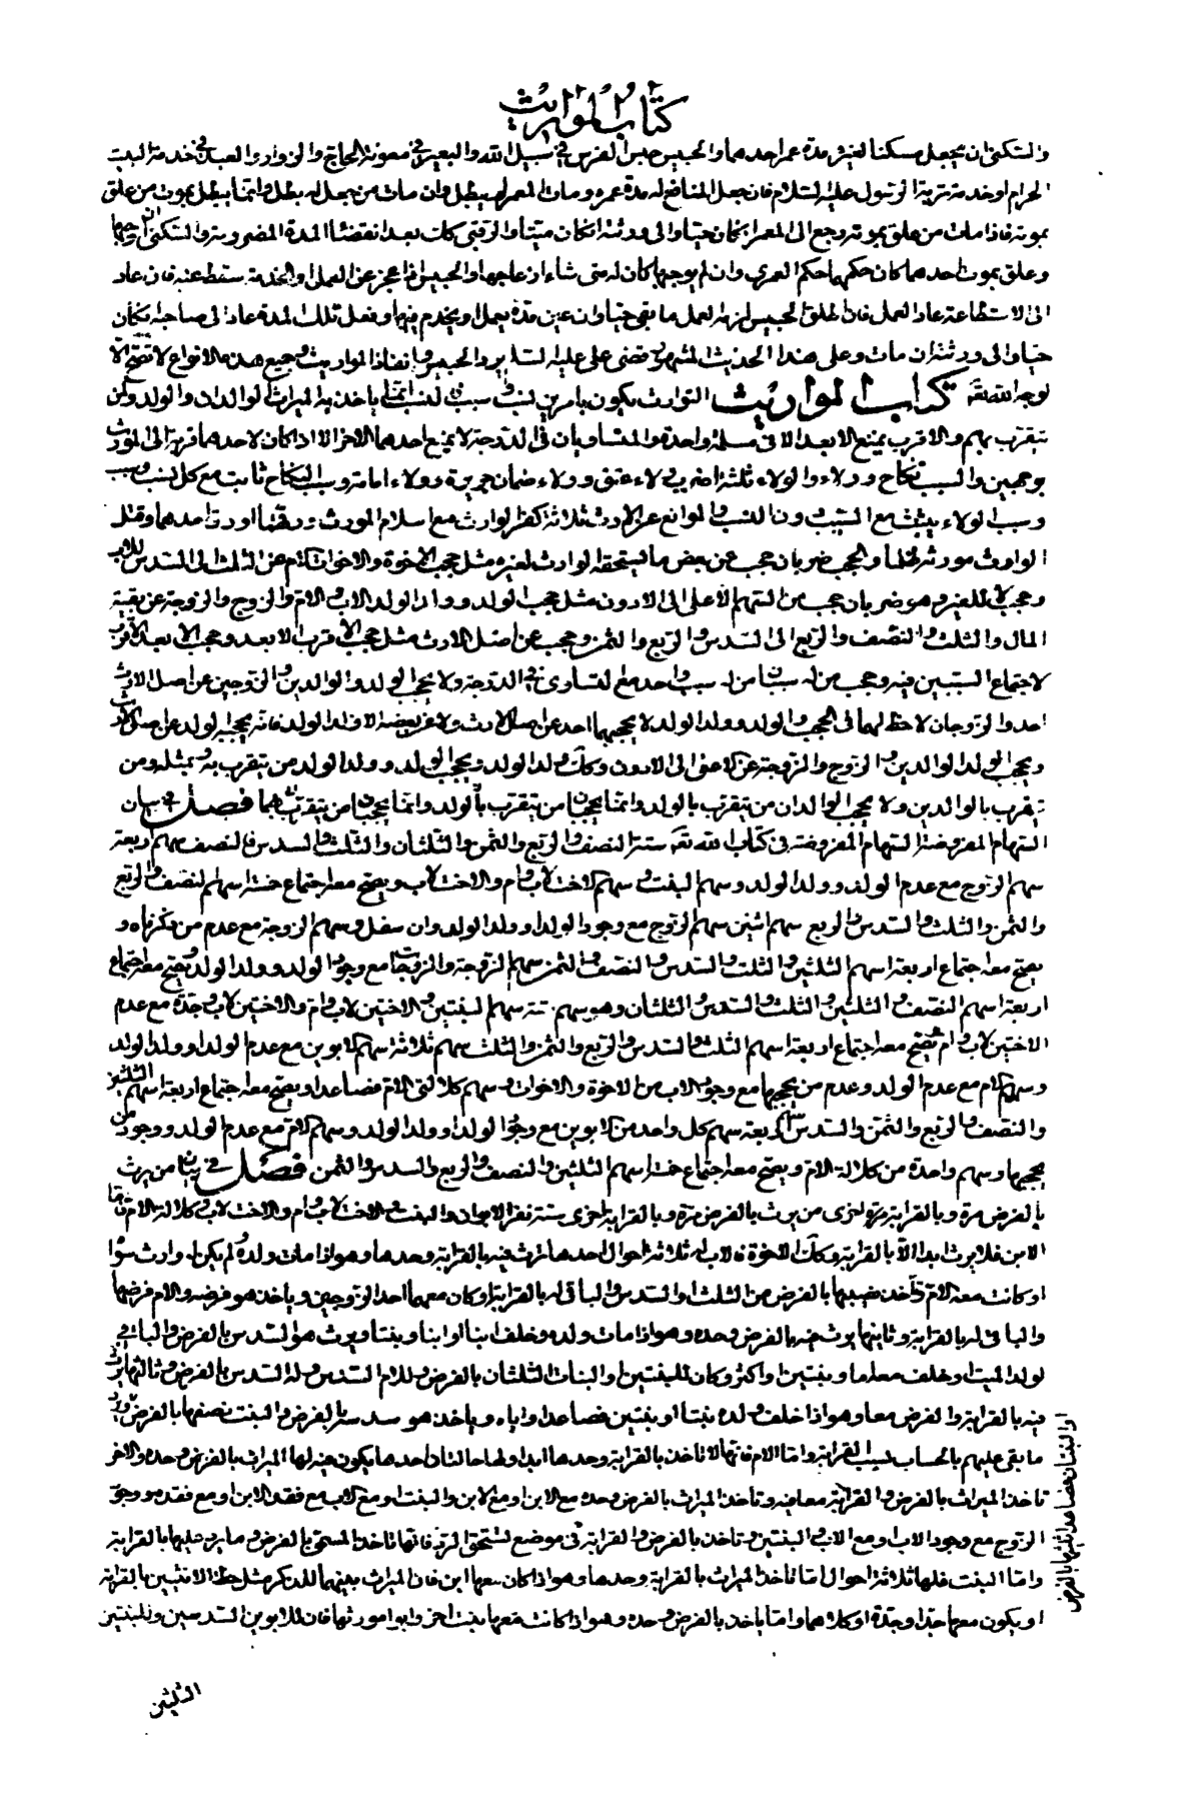 كتاب المواريث
والسكنى ان يجعل مسكنا لغيره مدة عمر احدهما والحبيس حبس الفرس في سبيل الله والبعير في معونة الحاج والزوار والعبد في خدمة البيت
الحرام او خدمة تربة الرسول عليه السلام فان جعل المنافع له مدة عمره ومات المعمر لم يبطل وان مات من جعل له بطل وانما يبطل بموت من علق
بموته فاذا مات من علق بموته رجع الى المعمر ان كان حيا والى ورثته ان كان ميتا والرقبى كانت بعد انقضاء المدة المضروبة والسكنى ان وجبها
وعلق بموت احدهما كان حكمها حكم العمرى وان لم يوجبها كان له متى شاء ازعاجها والحبيس اذا عجز عن العمل والخدمة سقط عنه فان عاد
الى الاستطاعة عاد العمل فان اطلق الحبيس لزمه العمل ما بقي حيا وان عين مدة يعمل او يخدم فيها وفعل تلك المدة عاد الى صاحبه ان كان
حيا والى ورثته ان مات وعلى هذا الحديث المشهور قضى علي عليه السلام برد الحبيس وانفاذ المواريث وجميع هذه الانواع لا تصح الا
لوجه الله تعالى كتاب المواريث التوارث يكون بامرين نسب وسبب فالنسب انما ياخذ به الميراث الوالدان والولد ومن
يتقرب بهم والاقرب يمنع الابعد الا في مسئلة واحدة والمتساويان في الدرجة لا يمنع احدهما الاخر الا اذا كان لاحدهما قربة الى المورث
بوجهين والسبب نكاح وولاء والولاء ثلثة اضرب ولاء عتق وولاء ضمان جريرة وولاء امامة وسبب النكاح ثابت مع كل نسب وسبب
وسبب الولاء يثبت مع السبب دون النسب والموانع عن الارث ثلاثة كفر الوارث مع اسلام المورث ورقهما او رق احدهما وقتل
الوارث مورثه ظلما والحجب ضربان حجب عن بعض ما يستحقه الوارث لغيره مثل حجب الاخوة والاخوات الام عن الثلث الى السدس للاب
وحجب لا للغير وهو ضربان حجب من السهم الاعلى الى الادون مثل حجب الولد وولد الولد الاب والام والزوج والزوجة عن بقية
المال والثلث والنصف والربع الى السدس والربع والثمن وحجب عن اصل الارث مثل حجب الاقرب الابعد وحجب الابعد الاقرب
لاجتماع السببين فيه وحجب من له سببان من له سبب واحد مع التساوي في الدرجة ولا يحجب الولد والوالدين والزوجين عن اصل الارث
احد والزوجان لا حظ لهما في الحجب والولد وولد الولد لا يحجبهما احد عن اصل الارث ولا فريضة الا ولد الولد فانه يحجبه الولد عن اصل الارث
ويحجب الولد الوالدين والزوج والزوجة عن الاعلى الى الادون وكذلك ولد الولد ويحجب الولد وولد الولد من يتقرب به وبمثله ومن
يتقرب بالوالدين ولا يحجب الوالدان من يتقرب بالولد وانما يحجبان من يتقرب بهما فصل في بيان
السهام المفروضة السهام المفروضة في كتاب الله تعالى ستة النصف والربع والثمن والثلثان والثلث والسدس فالنصف سهم اربعة
سهم الزوج مع عدم الولد وولد الولد وسهم البنت وسهم الاخت لاب وام والاخت لاب ويصح معه اجتماع خمسة اسهم النصف والربع
والثمن والثلث والسدس والربع سهم اثنين سهم الزوج مع وجود الولد او ولد الولد وان سفل وسهم الزوجة مع عدم من ذكرناه و
يصح معه اجتماع اربعة اسهم الثلثين والثلث والسدس والنصف والثمن سهم الزوجة والزوجات مع وجود الولد وولد الولد ويصح معه اجتماع
اربعة اسهم النصف والثلثين والثلث والسدس والثلثان وهو سهم ستة سهم البنتين والاختين لاب وام والاختين لاب وجدة مع عدم
الاختين لاب وام ويصح معه اجتماع اربعة اسهم الثلث والسدس والربع والثمن والثلث سهم ثلاثة سهم الابوين مع عدم الولد او ولد الولد
وسهم الام مع عدم الولد وعدم من يحجبها مع وجود الاب من الاخوة والاخوات وسهم كلالتي الام فصاعدا ويصح معه اجتماع اربعة اسهم الثلثين
والنصف والربع والثمن والسدس سهم اربعة سهم كل واحد من الابوين مع وجود الولد او ولد الولد وسهم الام مع عدم الولد ووجود من
يحجبها وسهم واحدة من كلالة الام ويصح معه اجتماع خمسة اسهم الثلثين والنصف والربع والسدس والثمن فصل في بيان من يرث
بالفرض مرة وبالقرابة مرة اخرى من يرث بالفرض مرة وبالقرابة اخرى ستة نفر الابوان والبنت والاخت لاب وام والاخت لاب وكلالة الام فاما
الابن فلا يرث ابدا الا بالقرابة وكذلك الاخوة فالاب له ثلاثة احوال احدها يرث فيه بالقرابة وحدها وهو اذا مات ولده ولم يكن له وارث سواه
او كانت معه الام تاخذ نصيبها بالفرض من الثلث او السدس والباقي له بالقرابة او كان معهما احد الزوجين وياخذ هو فرضه والام فرضها
والباقي له بالقرابة وثانيها يرث فيه بالفرض وحده وهو اذا مات ولده وخلف ابنا او ابنا وبنتا ويرث هو السدس بالفرض والباقي
لولد الميت او خلف معه اما وبنتين او اكثر وكان للبنتين او البنات الثلثان بالفرض وللام السدس وله السدس بالفرض وثالثها يرث
فيه بالقرابة والفرض معا وهو اذا خلف ولده بنتا او بنتين فصاعدا واياه وياخذ هو سدسه بالفرض والبنت نصفها بالفرض ويرد
ما بقي عليهم بالحساب لسبب القرابة واما الام فانها لا تاخذ بالقرابة وحدها ابدا ولها حالتان احدهما يكون فيه لها الميراث بالفرض وحده والاخر
تاخذ الميراث بالفرض والقرابة معا فيه وتاخذ الميراث بالفرض وحده مع الابن او مع الابن والبنت او مع الاب مع فقد الابن او مع فقده ووجود
الزوج مع وجود الاب او مع الاب والبنتين وتاخذ بالفرض والقرابة في موضع تستحق الرد فانها تاخذ المسمى بالفرض وما يرد عليها بالقرابة
واما البنت فلها ثلاثة احوال اما تاخذ الميراث بالقرابة وحدها وهو اذا كان معها ابن فان الميراث بينهما للذكر مثل حظ الانثيين بالقرابة
او يكون معها جد او جدة او كلاهما واما ياخذ بالفرض وحده وهو اذا كانت معها بنت اخرى وابوا مورثها فان للابوين السدسين وللبنتين
او البنتان فصاعدا ثلثيهما بالفرض
الثلثين